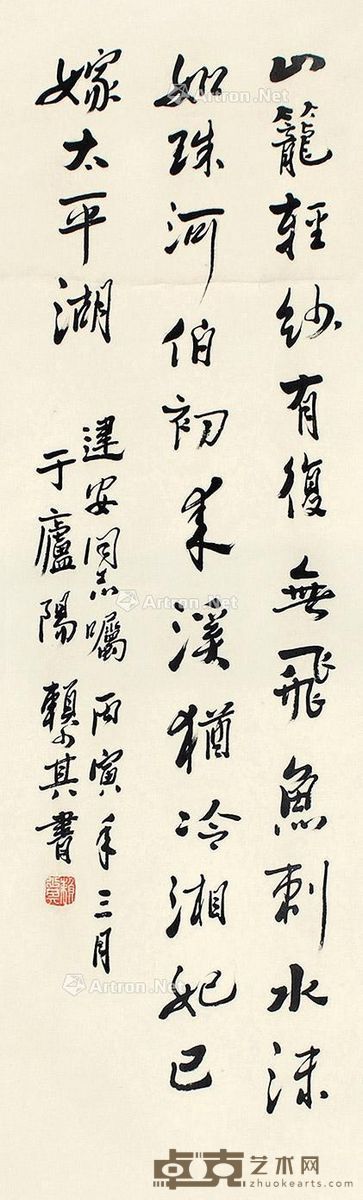 山籠輕紗有復無飛魚刺水沫
如珠河伯初來溪猶冷湘妃已
嫁太平湖
建安同志囑 丙寅年三月
于廬陽 賴少其書
Artron.Net
Artron.Net
Artron.Net
Artron.Net
Artron.Net
卓克艺术网
zhuokearts.com